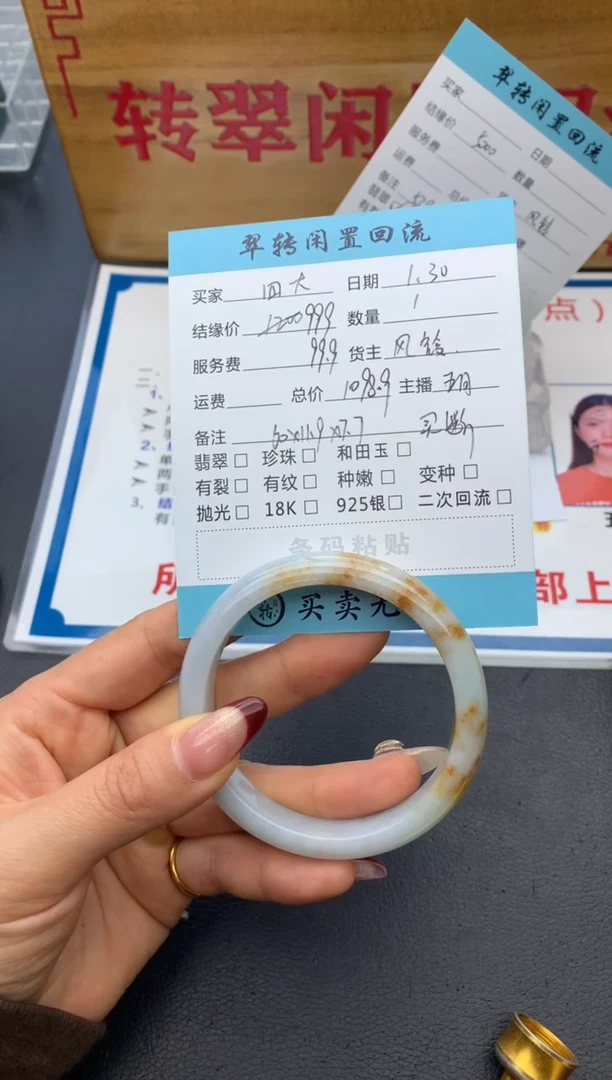 转翠闲
翠转闲置回流
买家 日期
结缘价 500 数量
服务费
运费
备注
风铃
翠转闲置回流
买家 四大 日期 1.30
结缘价 1200 999 数量 1
服务费 99.9 货主 风铃
运费 总价 1098.9 主播 玥
备注 60x11.9x7.7 买断
翡翠□ 珍珠□ 和田玉□
有裂□ 有纹□ 种嫩□ 变种□
抛光□ 18K□ 925银□ 二次回流□
条码粘贴
转 买卖无
点）
1、
2、
3、
所
部上